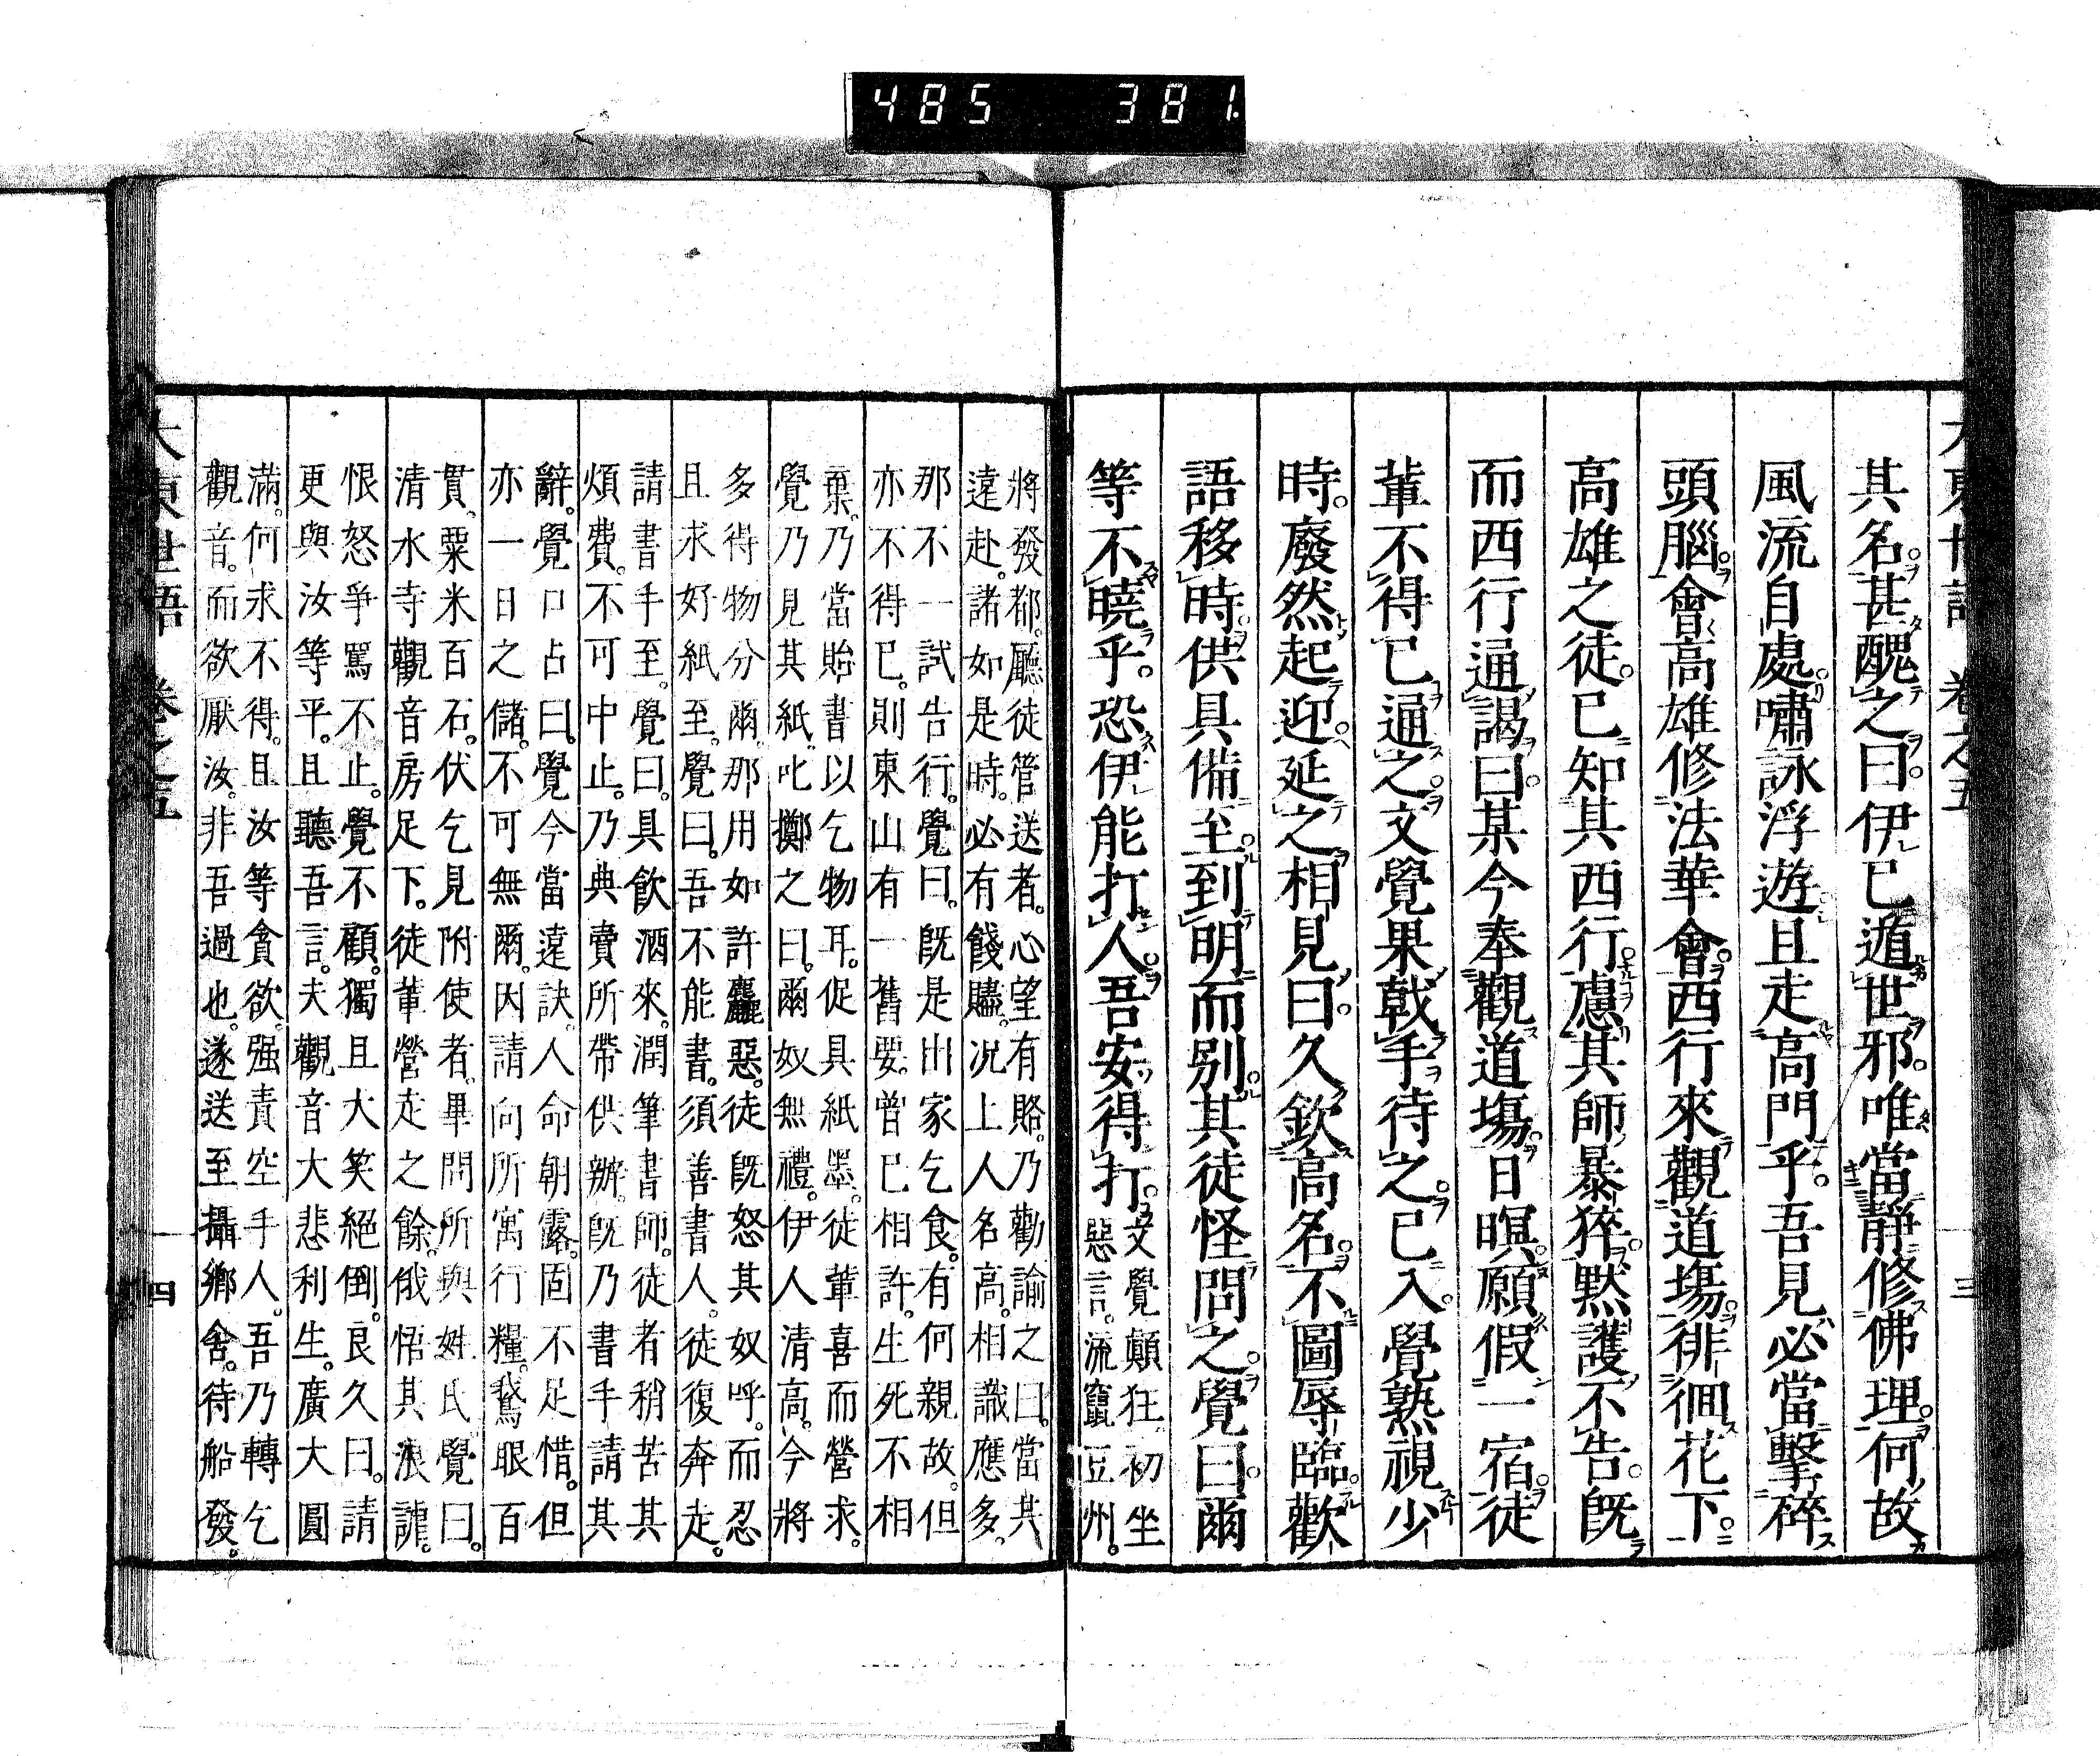 485 381
大東世語 卷之五 三
其名甚醜之曰伊已遁世邪唯當靜修佛理何故
風流自處嘯詠浮遊且走高門乎吾見必當擊碎
頭腦會高雄修法華會西行來觀道場徘徊花下
高雄之徒已知其西行慮其師暴猝默護不告既
而西行通謁曰某今奉觀道場日暝願假一宿徒
輩不得已通之文覺果戟手待之已入覺熟視少
時廢然起迎延之相見曰久欽高名不圖辱臨歡
語移時供具備至到明而別其徒怪問之覺曰爾
等不曉乎恐伊能打人吾安得打
文覺顛狂初坐
惡言流竄豆州。
將發都。廳徒管送者。心望有賂。乃勸諭之曰。當共
遠赴。諸如是時。必有餞贐。况上人名高。相識應多。
那不一試告行。覺曰。既是出家乞食。有何親故。但
亦不得已。則東山有一舊要。曾已相許。生死不相
棄。乃當貽書以乞物耳。促具紙墨。徒輩喜而營求。
覺乃見其紙。叱擲之曰。爾奴無禮。伊人清高。今將
多得物分爾。那用如許麤惡。徒既怒其奴呼。而忍
且求好紙至。覺曰。吾不能書。須善書人。徒復奔走。
請書手至。覺曰。具飲酒來。潤筆書師。徒者稍苦其
煩費。不可中止。乃典賣所帶供辦。既乃書手請其
辭。覺口占曰。覺今當遠訣。人命朝露。固不足惜。但
亦一日之儲。不可無爾。因請向所寓行糧。鵞眼百
貫。粟米百石。伏乞見附使者。畢問所與姓氏。覺曰。
清水寺觀音房足下。徒輩營走之餘。俄悟其浪謔。
恨怒爭罵不止。覺不顧。獨且大笑絕倒。良久曰。請
更與汝等平。且聽吾言。夫觀音大悲利生。廣大圓
滿。何求不得。且汝等貪欲。强責空手人。吾乃轉乞
觀音。而欲厭汝。非吾過也。遂送至攝鄉舍。待船發。
大東世語 卷之五 四